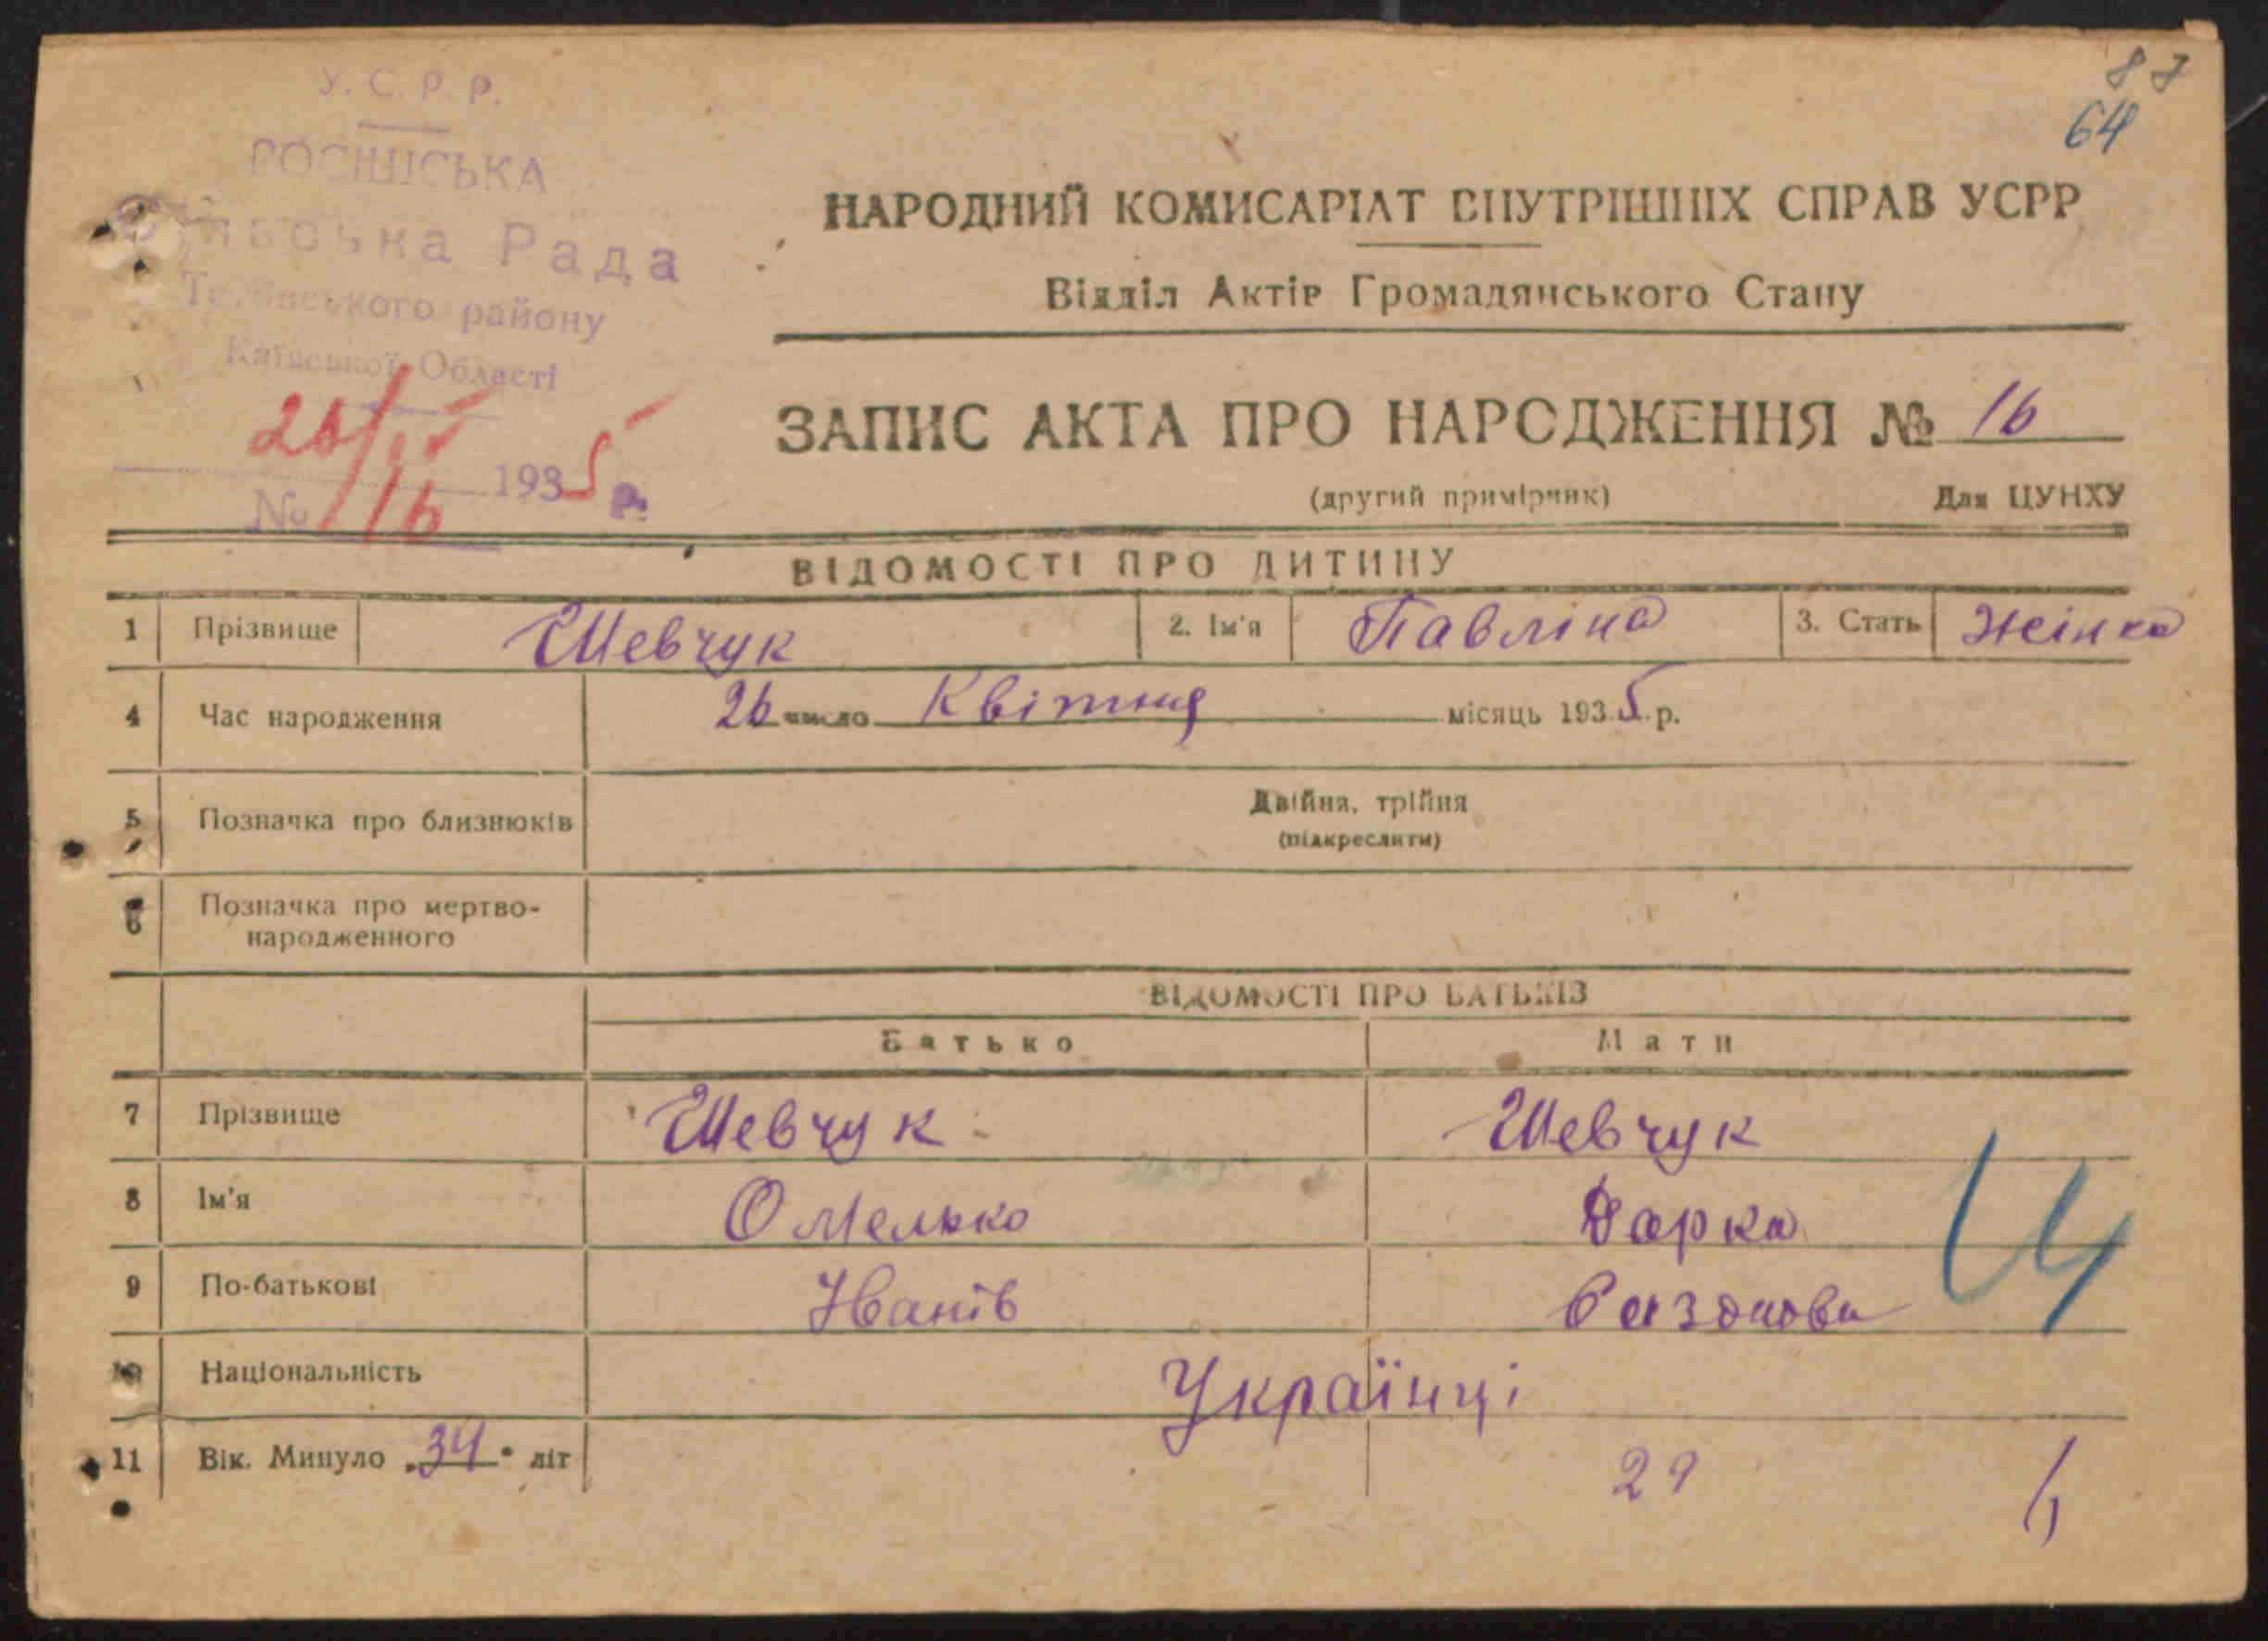 87
64
У. С. Р. Р.
РОСІШСЬКА
Сільська Рада
Тетіївського району
Київської Області
26/IV 1935 р.
№ 16
НАРОДНИЙ КОМИСАРІАТ ВНУТРІШНІХ СПРАВ УСРР
Відділ Актів Громадянського Стану
ЗАПИС АКТА ПРО НАРОДЖЕННЯ № 16
(другий примірник) Для ЦУНХУ
ВІДОМОСТІ ПРО ДИТИНУ
1 Прізвище Шевчук 2. Ім'я Павліна 3. Стать Жінка
4 Час народження 26 число Квітня місяць 1935 р.
5 Позначка про близнюків Двійня, трійня
(підкреслити)
6 Позначка про мертво-
народженного
ВІДОМОСТІ ПРО БАТЬКІВ
Батько Мати
7 Прізвище Шевчук Шевчук
8 Ім'я Омелько Дарка
9 По-батькові Іванів Сазонова
10 Національність Українці
11 Вік. Минуло „34“ літ 29